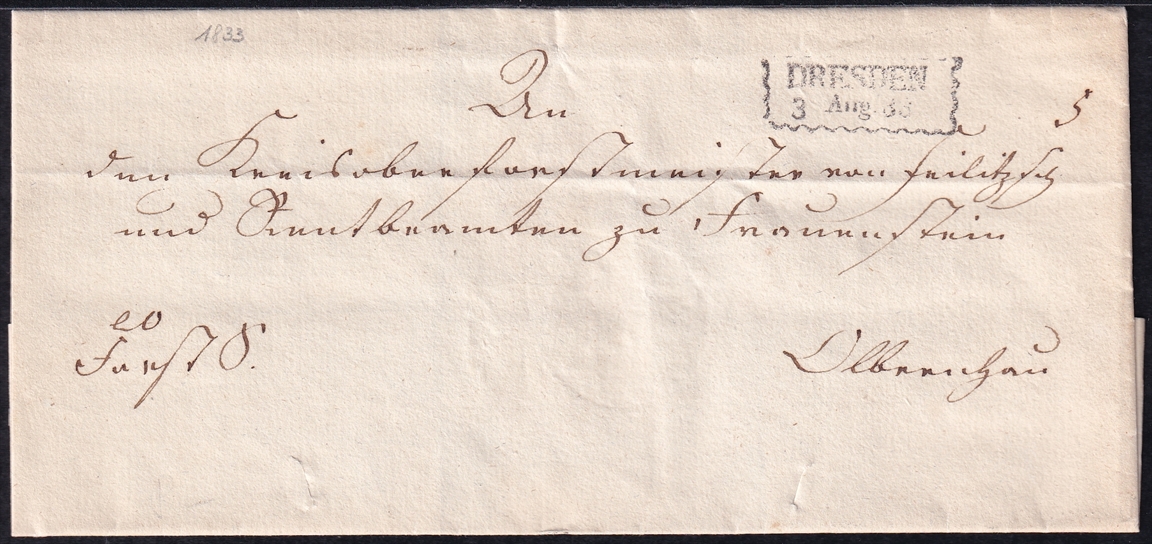 1833
An
DRESDEN
3 Aug. 33
5
den Kreisoberforstmeister von Feilitzsch
und Rentbeamten zu Frauenstein
Forst S.
Olbernhau